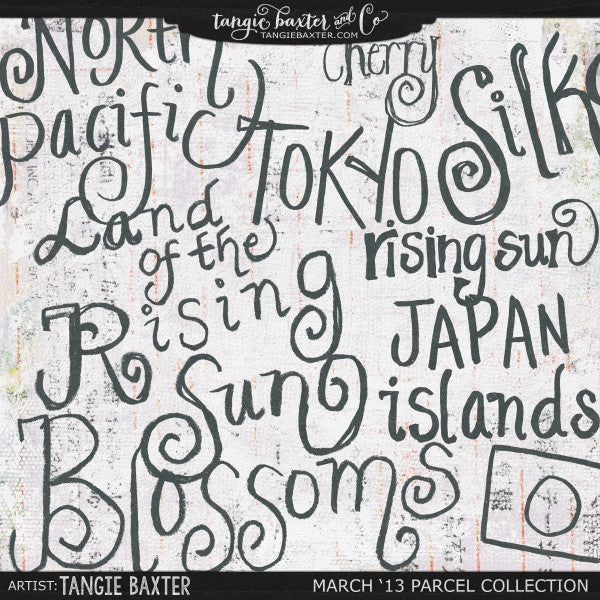 tangie baxter and Co
TANGIEBAXTER.COM
NORTH
pacific
cherry
TOKYO
Silk
Land
of the
Rising
Sun
rising sun
JAPAN
islands
Blossoms
ARTIST: TANGIE BAXTER
MARCH '13 PARCEL COLLECTION